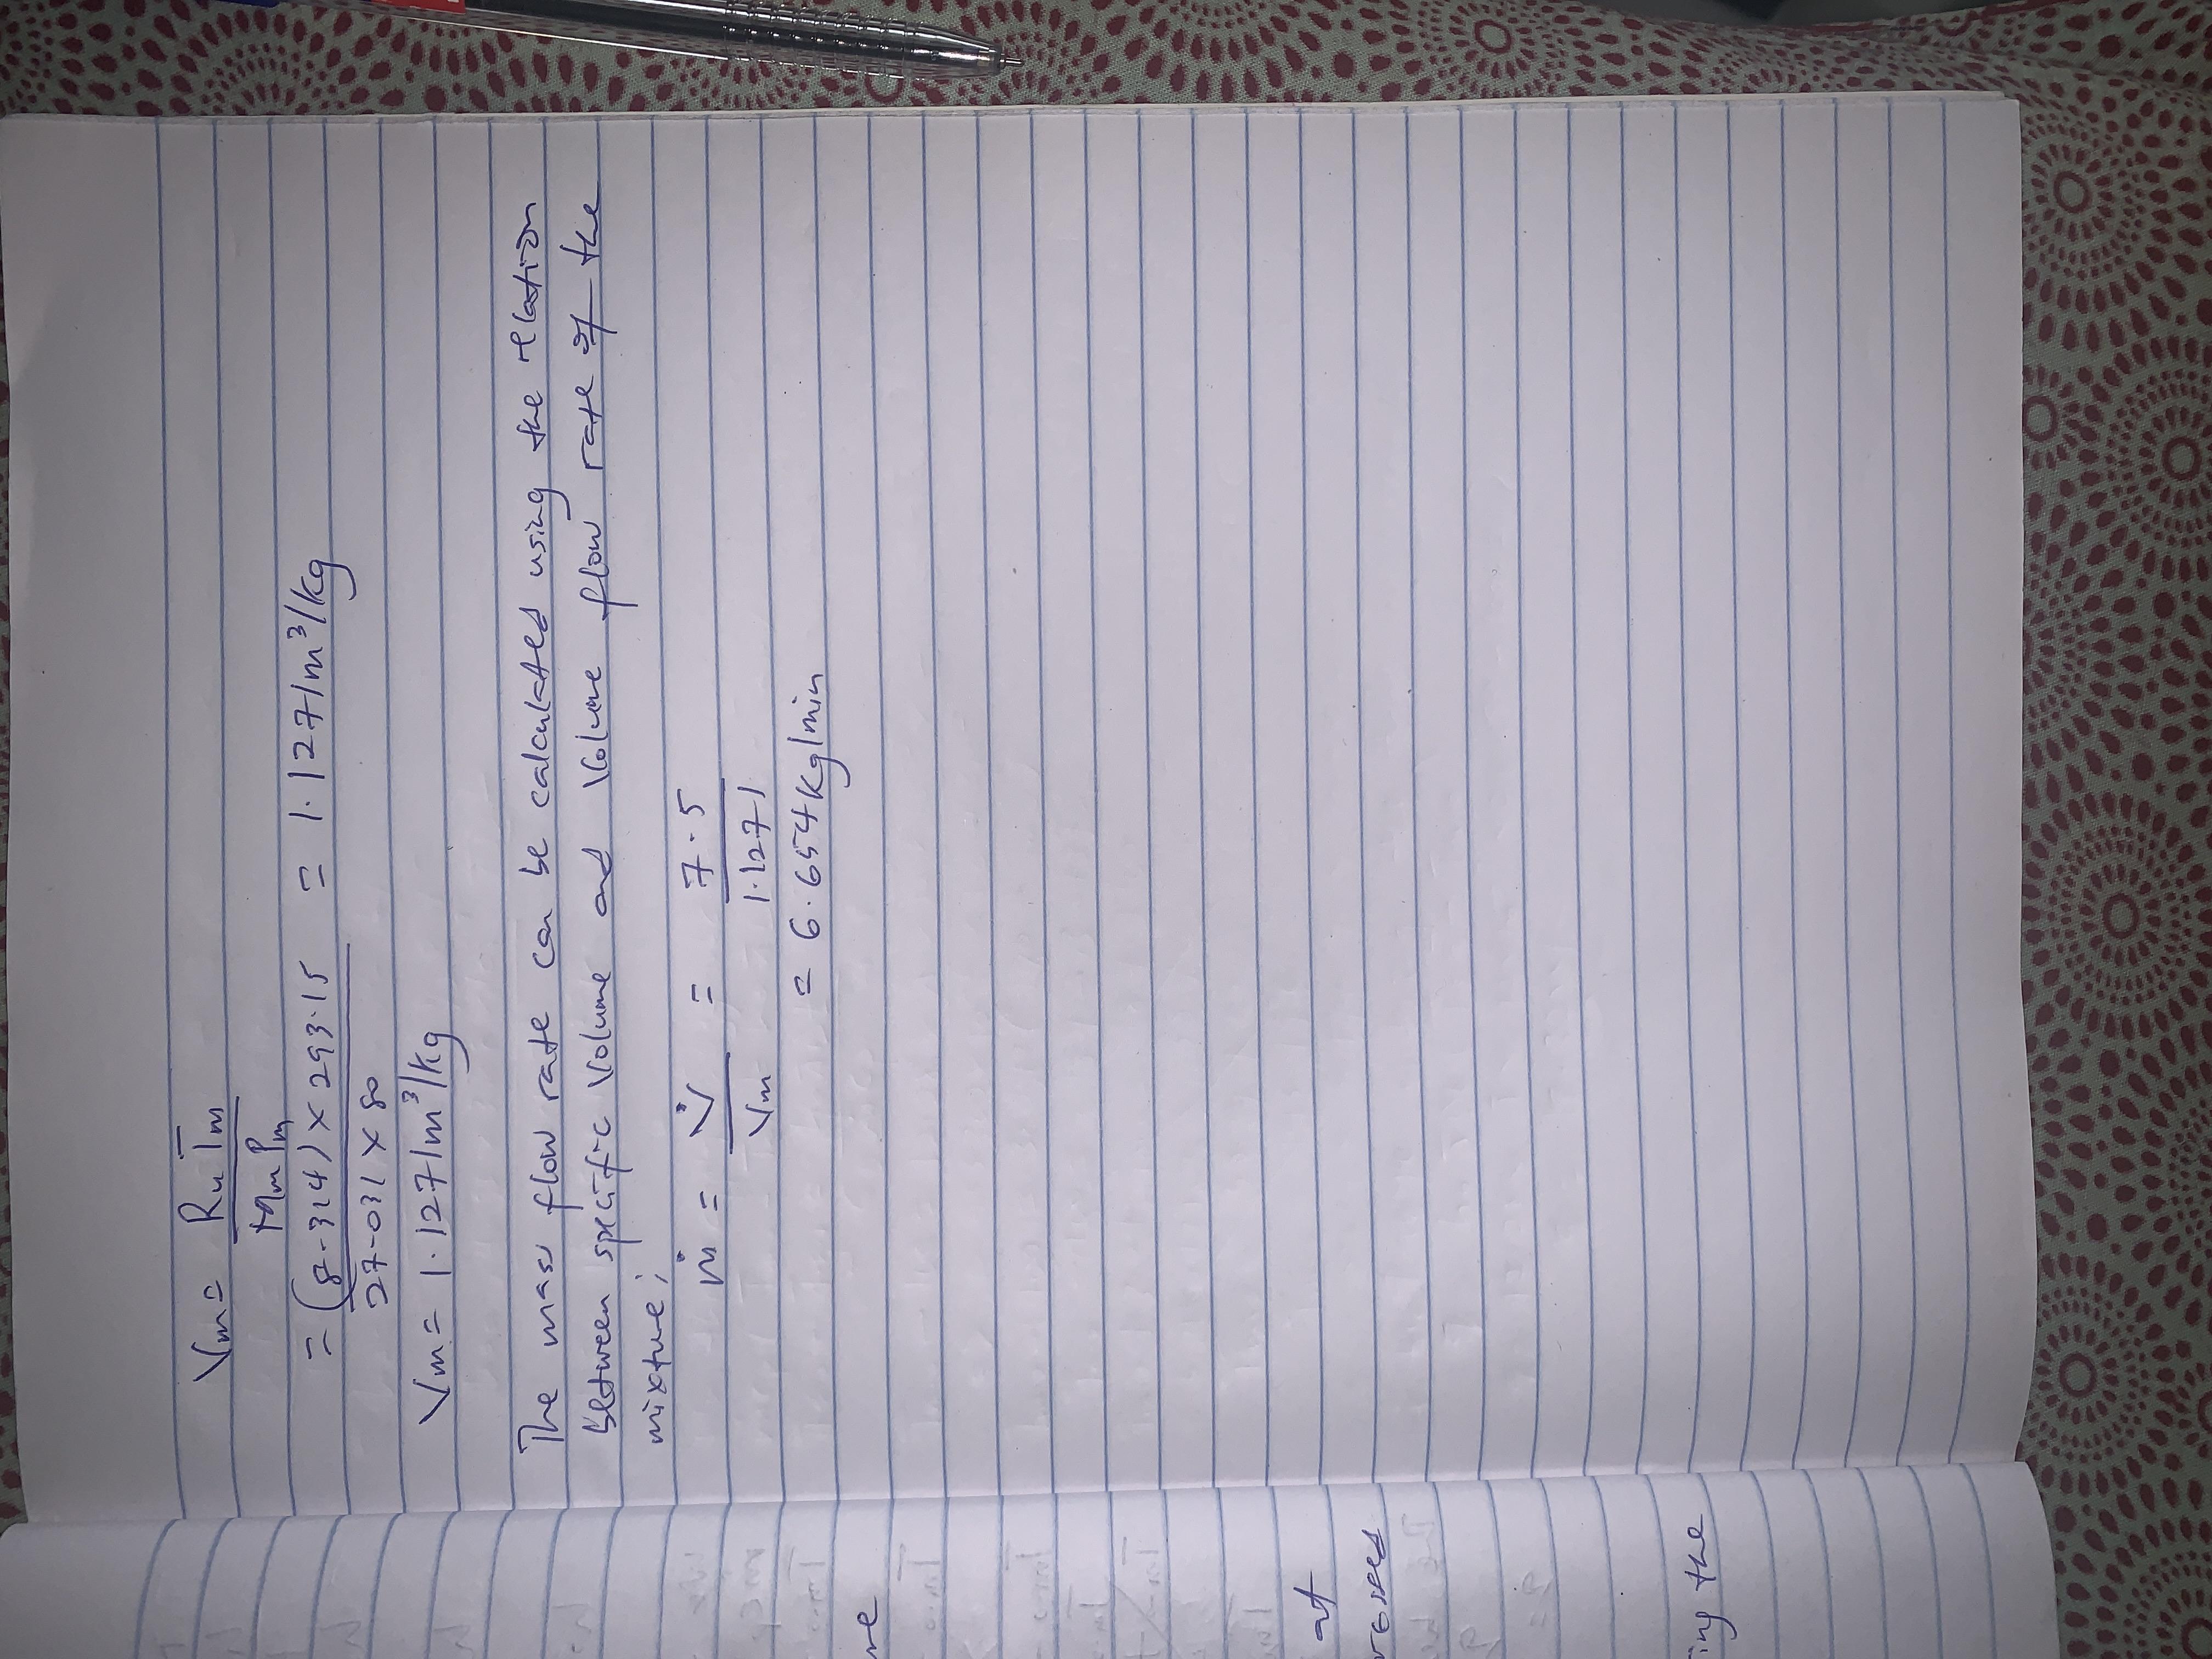 Vm = Ru Tm
Mm Pm
= (8.314) × 293.15 = 1.1271m³/kg
27.031 × 80
Vm = 1.1271m³/kg
The mass flow rate can be calculated using the relation
between specific volume and volume flow rate of the
mixture;
ṁ = V̇ = 7.5
Vm 1.1271
= 6.6541kg/min
at
ing the